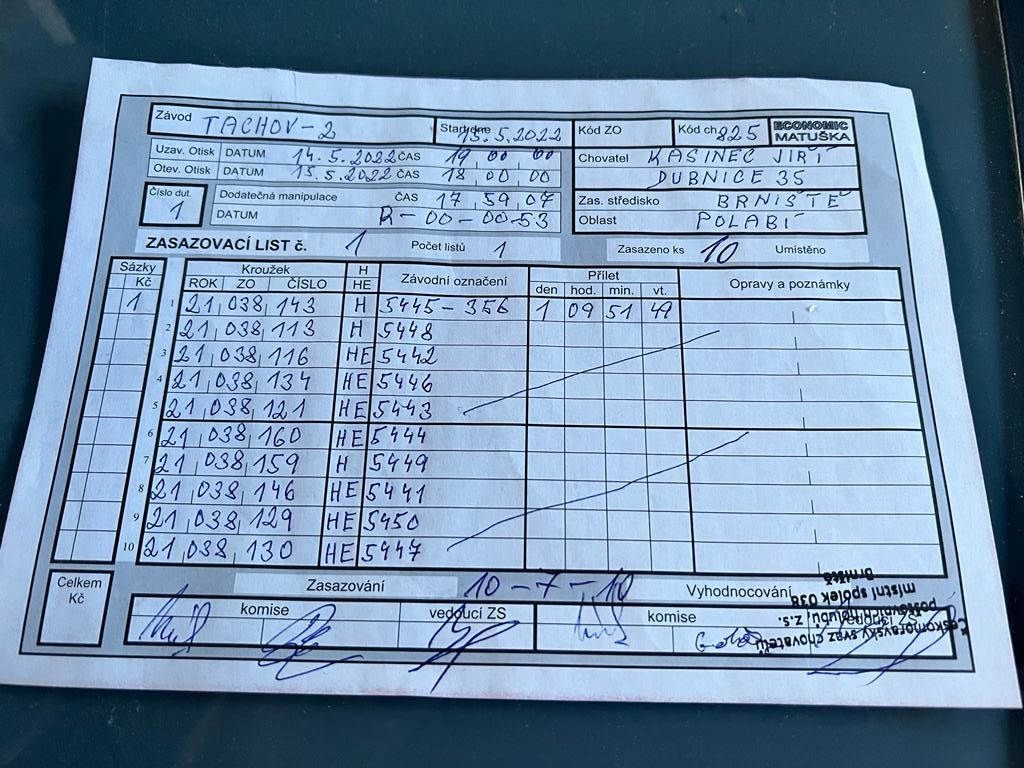 Závod TACHOV-2 Start dne 15.5.2022 Kód ZO Kód ch 825 ECONOMIC MATUŠKA
Uzav. Otisk DATUM 14.5.2022 ČAS 19 00 00
Otev. Otisk DATUM 15.5.2022 ČAS 18,00,00
Chovatel KASINEC JIŘÍ
DUBNICE 35
Číslo dut. 1
Dodatečná manipulace ČAS 17,59,07
DATUM R-00-00-53
Zas. středisko BRNIŠTĚ
Oblast POLABÍ
ZASAZOVACÍ LIST č. 1 Počet listů 1 Zasazeno ks 10 Umístěno
Sázky Kč Kroužek H HE Závodní označení Přílet Opravy a poznámky
ROK ZO ČÍSLO den hod. min. vt.
1 1 21,038,143 H 5445-356 1 09 51 49
2 21,038,113 H 5448
3 21,038,116 HE 5442
4 21,038,134 HE 5446
5 21,038,121 HE 5443
6 21,038,160 HE 5444
7 21,038,159 H 5449
8 21,038,146 HE 5441
9 21,038,129 HE 5450
10 21,038,130 HE 5447
Celkem Kč
Zasazování 10-7-10 Vyhodnocování
komise vedoucí ZS komise vedoucí ZS
Českomoravský svaz chovatelů
poštovních holubů z.s.
místní spolek 038
Brniště